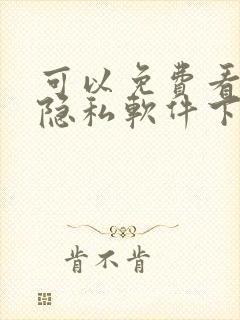 可以免费看
隐私軟件下
肯不肯